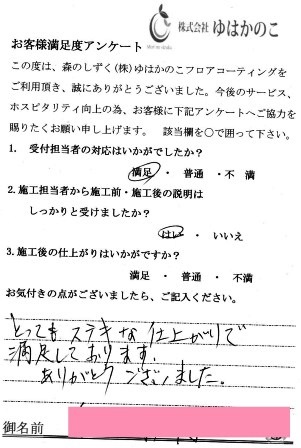 株式会社 ゆはかのこ
お客様満足度アンケート
この度は、森のしずく(株)ゆはかのこフロアコーティングを
ご利用頂き、誠にありがとうございました。今後のサービス、
ホスピタリティ向上の為、お客様に下記アンケートへご協力を
賜りたくお願い申し上げます。 該当欄を〇で囲って下さい。
1. 受付担当者の対応はいかがでしたか?
満足 ・ 普通 ・ 不満
2. 施工担当者から施工前・施工後の説明は
しっかりと受けましたか?
はい ・ いいえ
3. 施工後の仕上がりはいかがですか?
満足 ・ 普通 ・ 不満
お気付きの点がございましたら、ご記入ください。
とってもステキな仕上がりで
満足しております.
ありがとうございました.
御名前